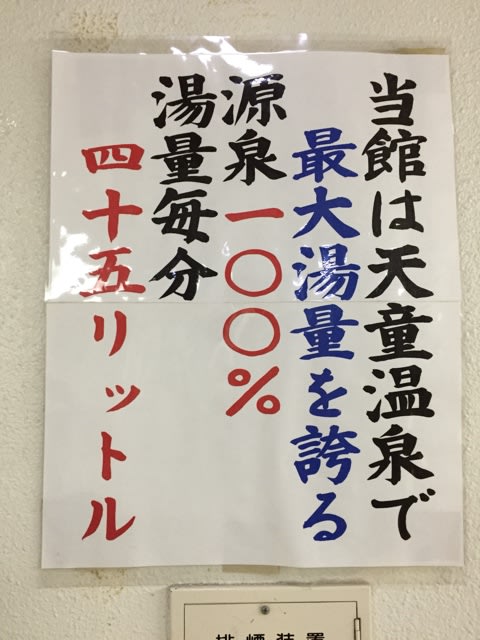 当館は天童温泉で
最大湯量を誇る
源泉一〇〇%
湯量毎分
四十五リットル
排煙装置